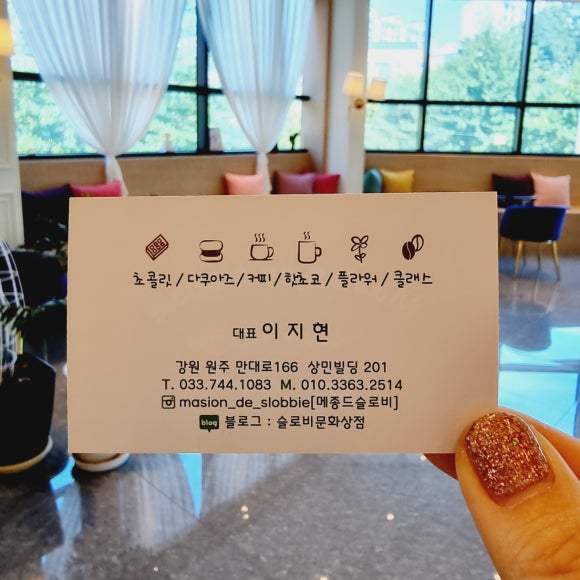 초콜릿 / 다쿠아즈 / 커피 / 핫초코 / 플라워 / 클래스
대표 이 지 현
강원 원주 만대로166 상민빌딩 201
T. 033.744.1083 M. 010.3363.2514
masion_de_slobbie[메종드슬로비]
blog 블로그 : 슬로비문화상점